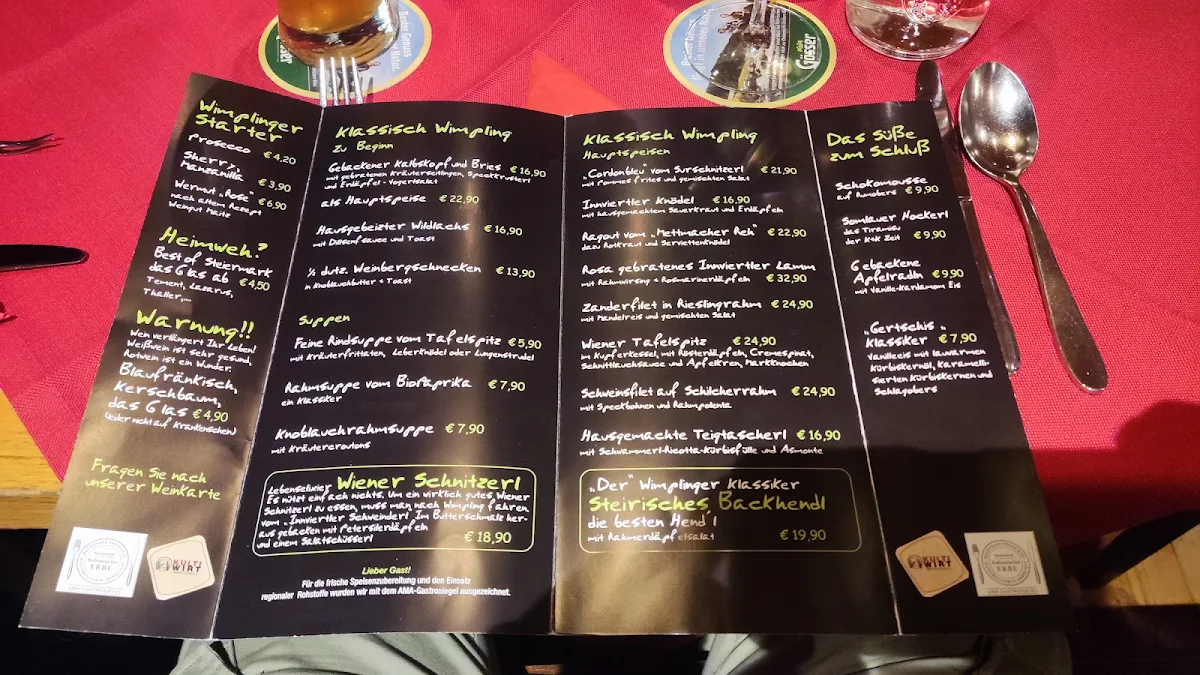 Wimplinger
Starter
Prosecco € 4,20
Sherry,
Manzanilla € 3,90
Wermut „Rose" € 6,90
nach altem Rezept
Weingut Maitz
Heimweh?
Best of Steiermark
das Glas ab € 4,50
Tement, Lazarus,
Thaller,...
Warnung!!
Wein verlängert Ihr Leben!
Weißwein ist sehr gesund,
Rotwein ist ein Wunder.
Blaufränkisch,
Kerschbaum,
das Glas € 4,90
(leider nicht auf Krankenschein)
Fragen Sie nach
unserer Weinkarte
ERBE
KULTI
WIRT
Klassisch Wimpling
zu Beginn
Gebackener Kalbskopf und Bries € 16,90
mit gebratenen Kräuterseitlingen, Speckkrusterl
und Erdäpfel-Vogerlsalat
als Hauptspeise € 22,90
Hausgebeizter Wildlachs € 16,90
mit Dillsenfsauce und Toast
½ dutz. Weinbergschnecken € 13,90
in Knoblauchbutter + Toast
Suppen
Feine Rindsuppe vom Tafelspitz € 5,90
mit Kräuterfrittaten, Leberknödel oder Lungenstrudel
Rahmsuppe vom BioPaprika € 7,90
ein Klassiker
Knoblauchrahmsuppe € 7,90
mit Kräutercroutons
Lebenselixier Wiener Schnitzerl
Es nützt einfach nichts. Um ein wirklich gutes Wiener
Schnitzerl zu essen, muss man nach Wimpling fahren.
vom „Innviertler Schweinderl". Im Butterschmalz her-
aus gebacken mit Petersilerdäpfeln
und einem Salatschüsserl € 18,90
Lieber Gast!
Für die frische Speisenzubereitung und den Einsatz
regionaler Rohstoffe wurden wir mit dem AMA-Gastrosiegel ausgezeichnet.
Klassisch Wimpling
Hauptspeisen
„Cordonbleu" vom Surschnitzerl € 21,90
mit Pommes frites und gemischten Salat
Innviertler Knödel € 16,90
mit hausgemachtem Sauerkraut und Erdäpfeln
Ragout vom „Mettmacher Reh" € 22,90
dazu Rotkraut und Serviettenknödel
Rosa gebratenes Innviertler Lamm
mit Rahmwirsing + Rosmarinerdäpfeln € 32,90
Zanderfilet in Rieslingrahm € 24,90
mit Mandelreis und gemischten Salat
Wiener Tafelspitz € 24,90
im Kupferkessel, mit Rösterdäpfeln, Cremespinat,
Schnittlauchsauce und Apfelkren, Markknochen
Schweinsfilet auf Schilcherrahm € 24,90
mit Speckbohnen und Rahmpolenta
Hausgemachte Teigtascherl € 16,90
mit Schwammerl-Ricotta-Kürbisfülle und Asmonte
„Der" Wimplinger Klassiker
Steirisches Backhendl
die besten Hend'l
mit Rahmerdäpfelsalat € 19,90
Das Süße
zum Schluß
Schokomousse
auf Rumobers € 9,90
Somlauer Nockerl
das Tiramisu
der K+K Zeit € 9,90
Gebackene
Apfelradln € 9,90
mit Vanille-Kardamom Eis
„Gertschis"
Klassiker € 7,90
Vanilleeis mit lauwarmen
Kürbiskernöl, karamelli-
sierten Kürbiskernen und
Schlagobers
KULTI
WIRT
ERBE
Gösser